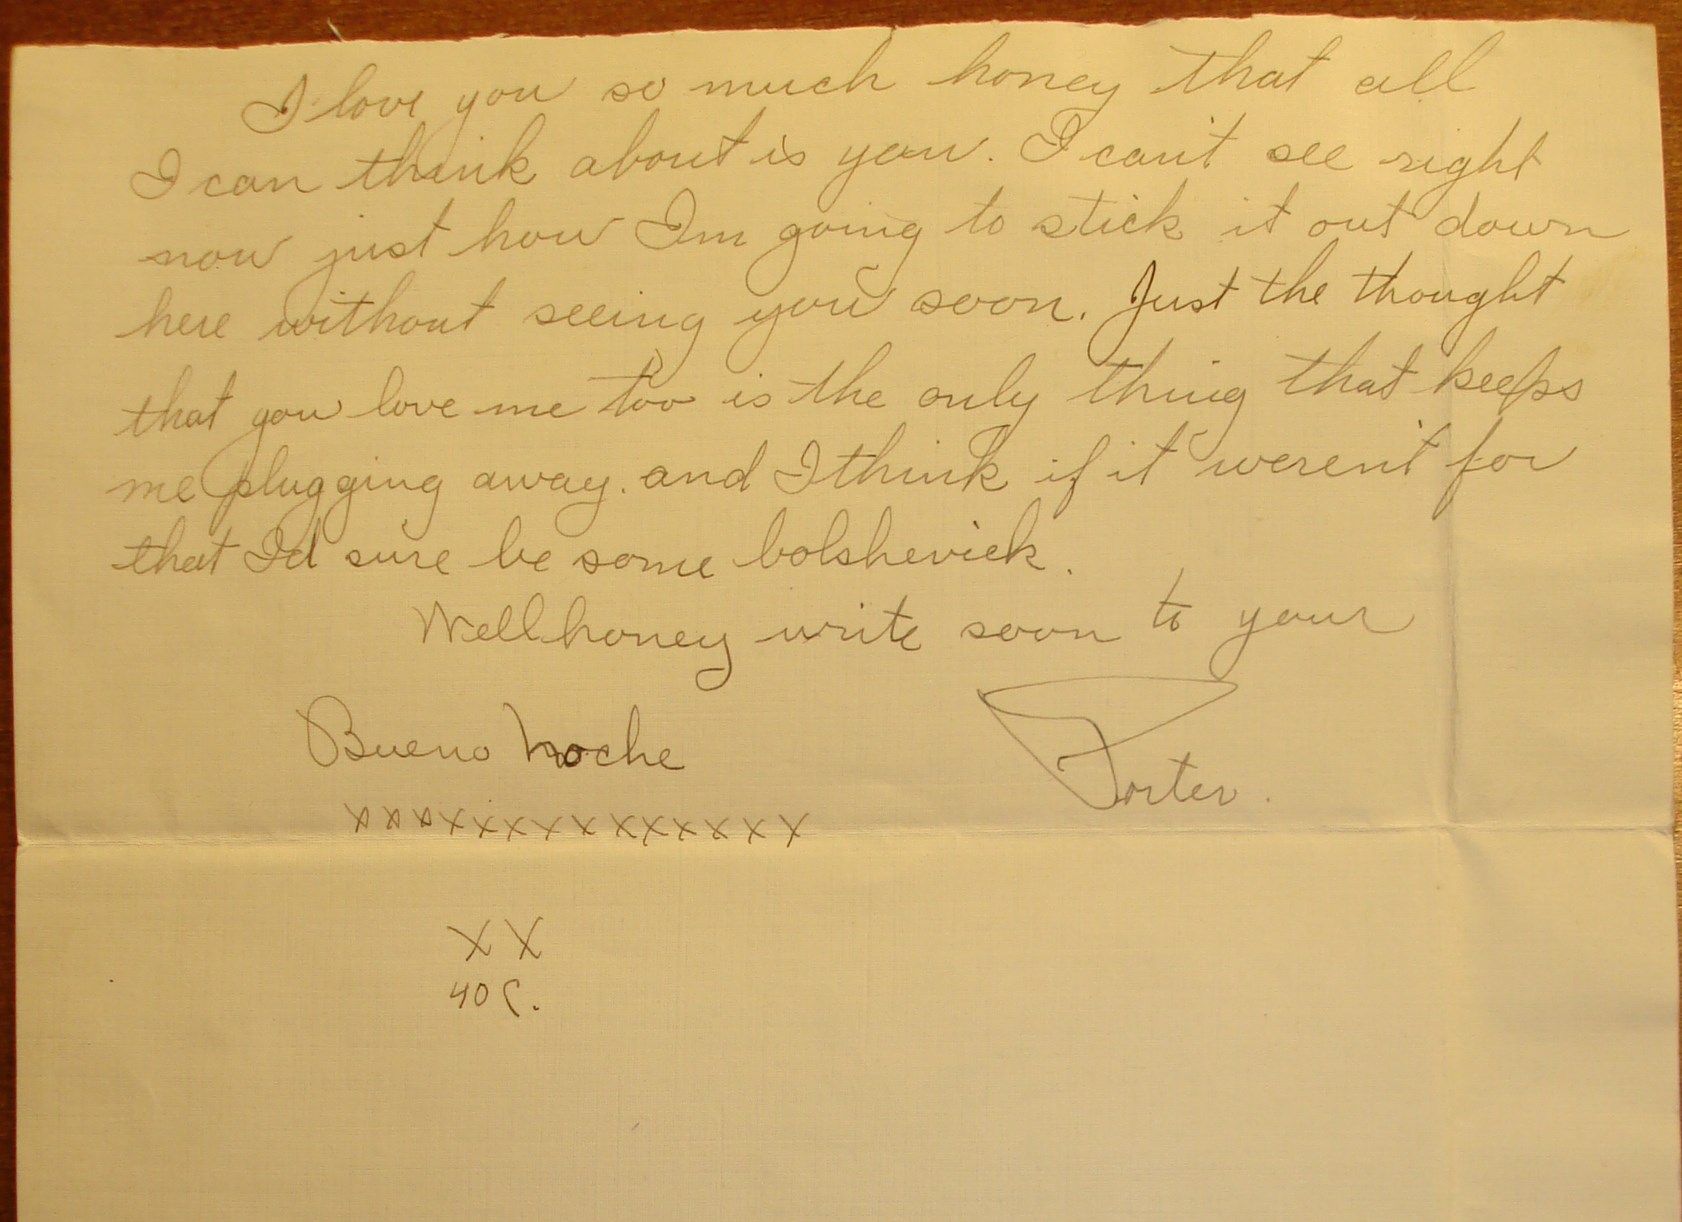 I love you so much honey that all
I can think about is you. I can't see right
now just how Im going to stick it out down
here without seeing you soon. Just the thought
that you love me too is the only thing that keeps
me plugging away. and I think if it weren't for
that I'd sure be some bolshevick.
Well honey write soon to your
Bueno Noche
Porter.
x x x x x x x x x x x x x x
X X
40 C.